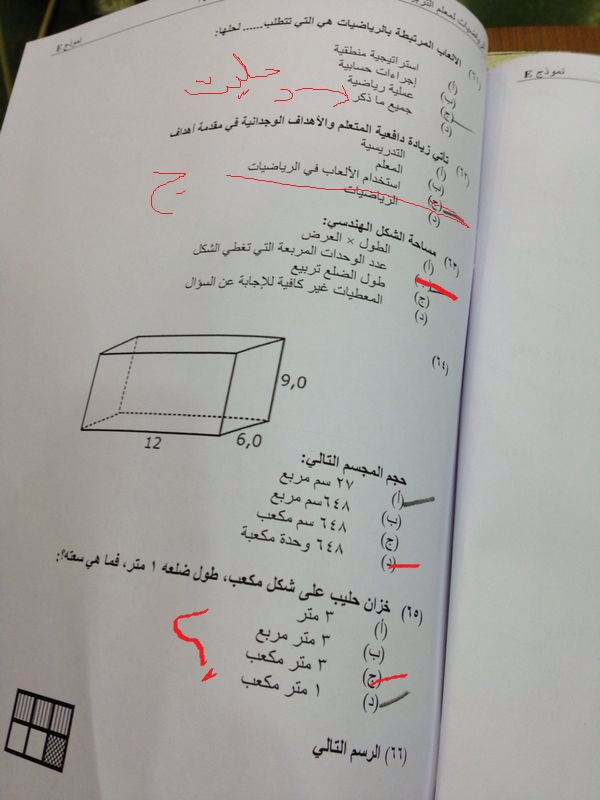 نموذج E
الرياضيات لمعلم
نموذج E
(٦١) الألعاب المرتبطة بالرياضيات هي التي تتطلب...... لحلها:
أ) استراتيجية منطقية
ب) إجراءات حسابية
ج) عملية رياضية
د) جميع ما ذكر
(٦٢) تأتي زيادة دافعية المتعلم والأهداف الوجدانية في مقدمة أهداف
أ) التدريسية
ب) المعلم
ج) استخدام الألعاب في الرياضيات
د) الرياضيات
ج
(٦٣) مساحة الشكل الهندسي:
أ) الطول × العرض
ب) عدد الوحدات المربعة التي تغطي الشكل
ج) طول الضلع تربيع
د) المعطيات غير كافية للإجابة عن السؤال
(٦٤)
9,0
6,0
12
حجم المجسم التالي:
أ) ٢٧ سم مربع
ب) ٦٤٨ سم مربع
ج) ٦٤٨ سم مكعب
د) ٦٤٨ وحدة مكعبة
(٦٥) خزان حليب على شكل مكعب، طول ضلعه ١ متر، فما هي سعته؟:
أ) ٣ متر
ب) ٣ متر مربع
ج) ٣ متر مكعب
د) ١ متر مكعب
(٦٦) الرسم التالي